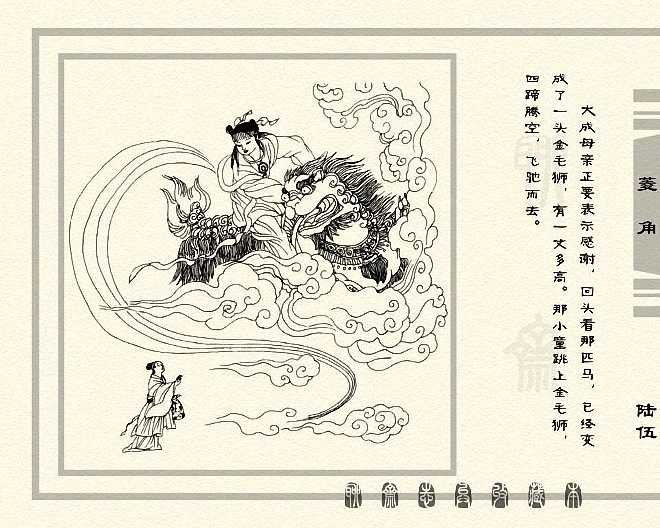 大成母亲正要表示感谢，回头看那匹马，已经变
成了一头金毛狮，有一丈多高。那小童跳上金毛狮，
四蹄腾空，飞驰而去。
菱角
陆伍
聊斋志异收藏本